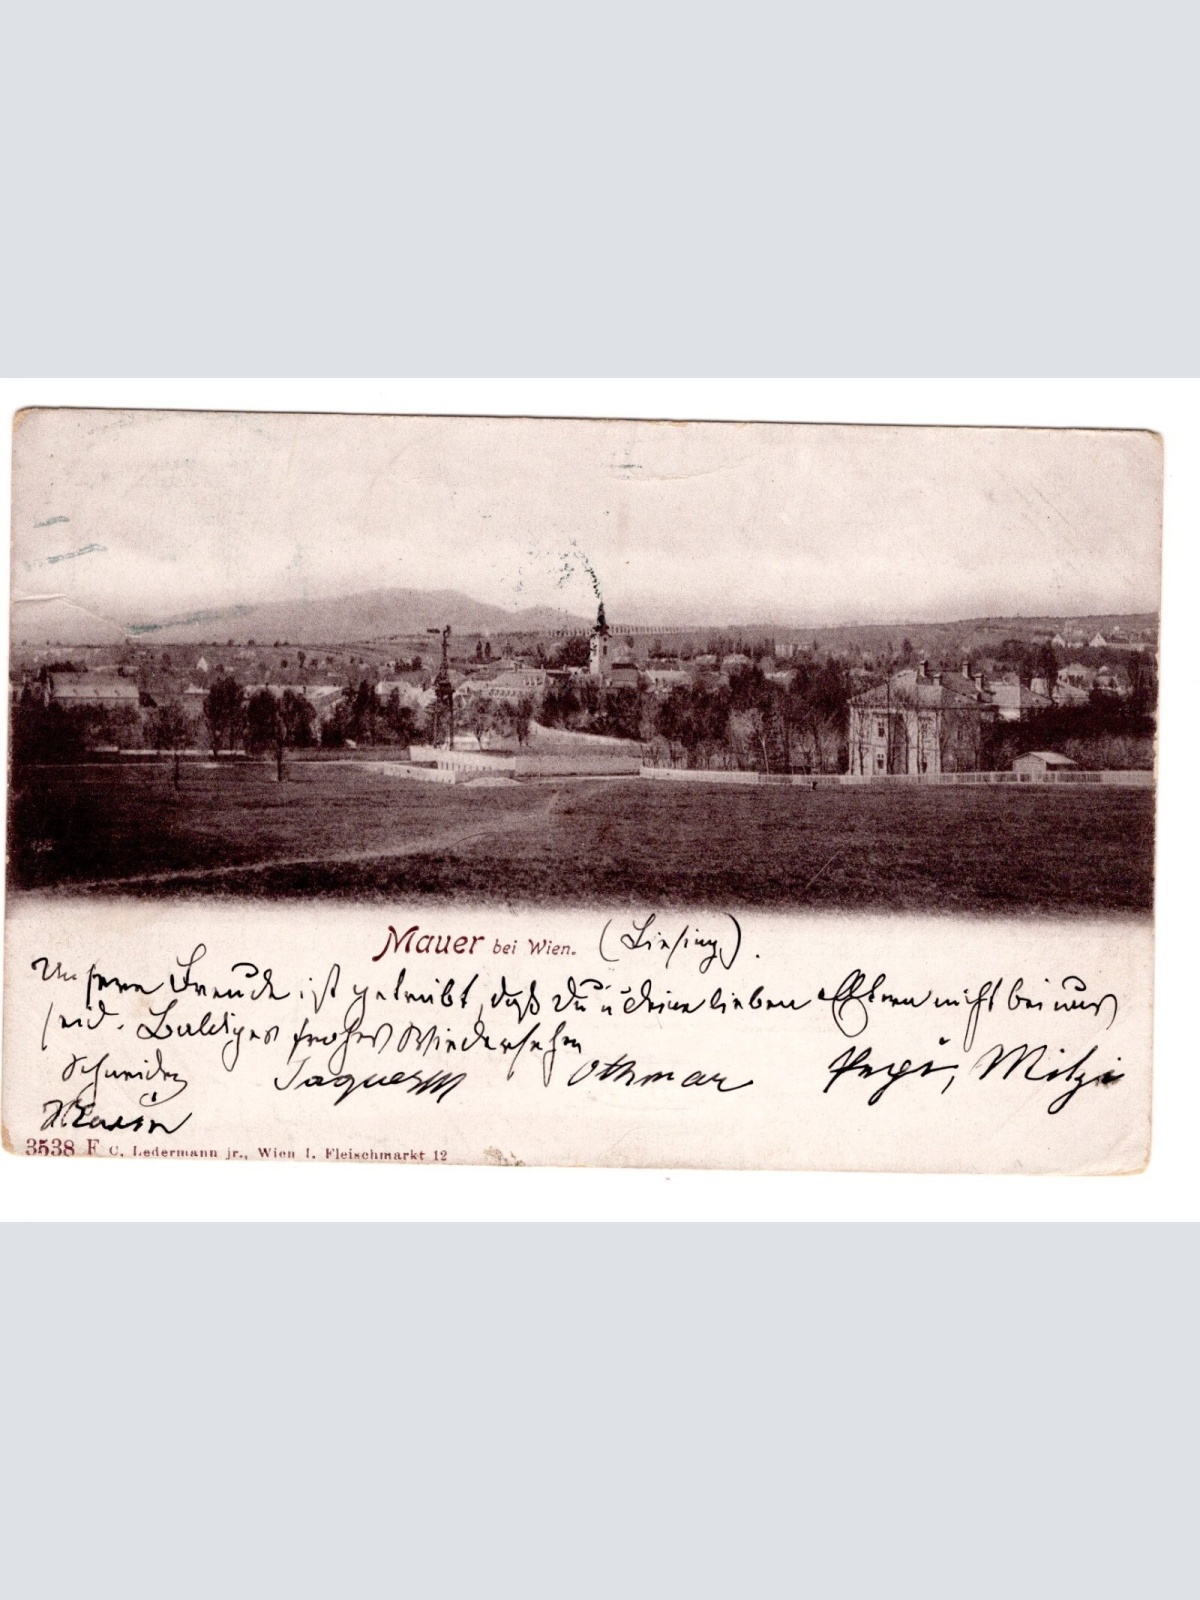 Mauer bei Wien. (Liesing).
Unsere Freude ist getrübt, daß Du u deine lieben Eltern nicht bei uns
seid. Baldiges frohes Wiedersehen
Schneider Jaques Othmar Mitzi
3538 F C. Ledermann jr., Wien I. Fleischmarkt 12